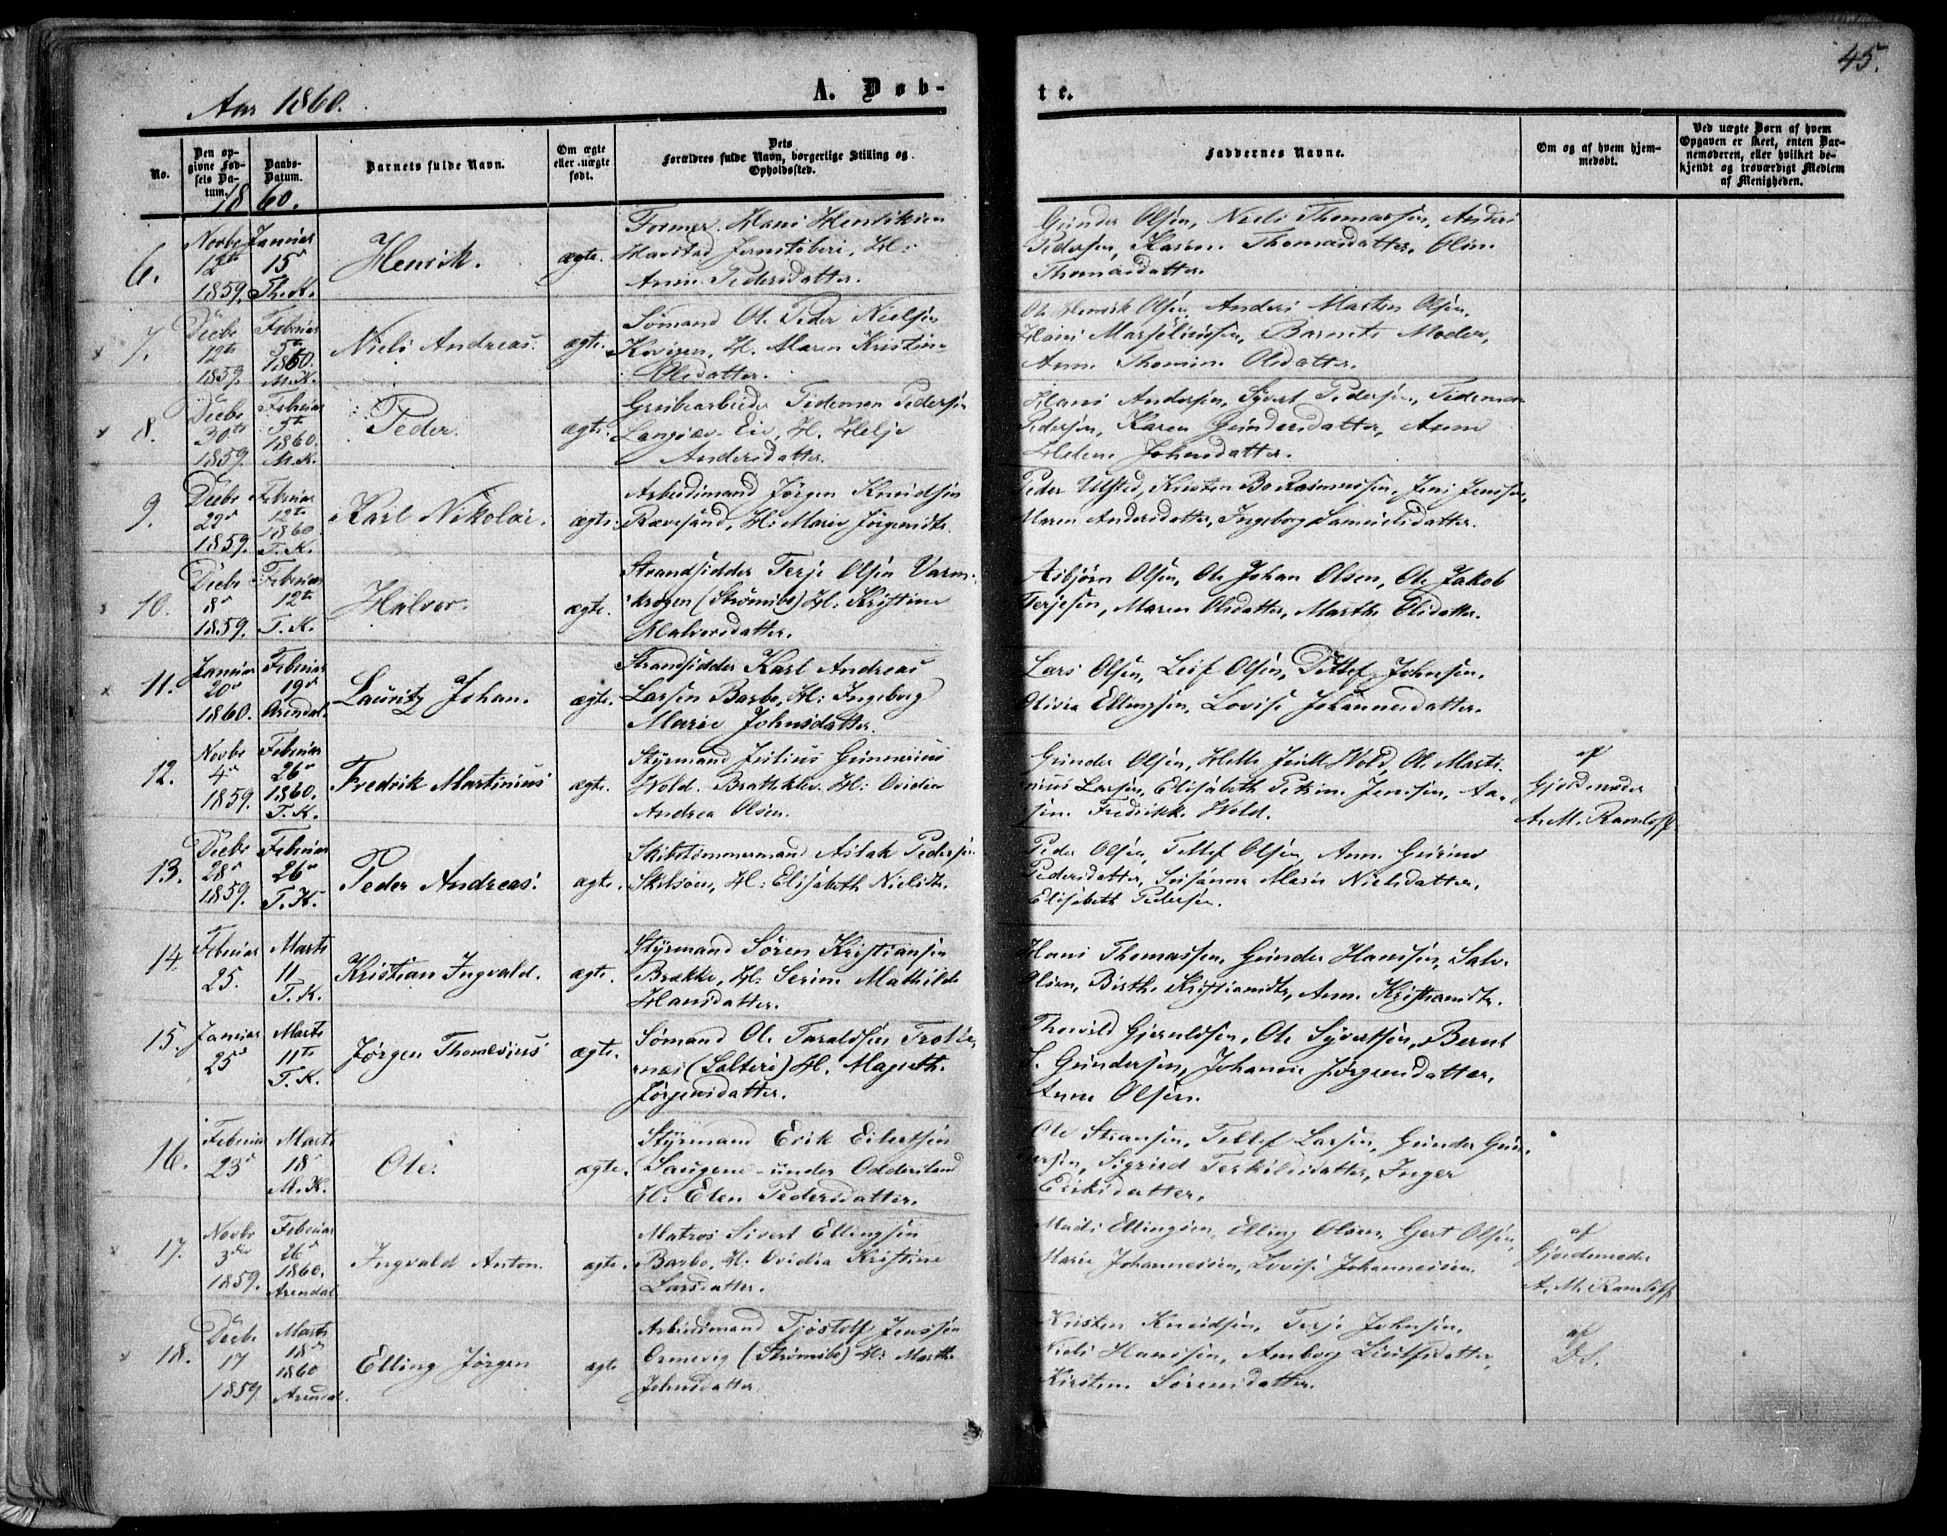 45.
Aar 1860.
A. Døb-
te.
No.
Den opgivne Fødsels Datum.
Daabs-Datum.
Barnets fulde Navn.
Om ægte eller uægte født.
Dets Forældres fulde Navn, borgerlige Stilling og Opholdssted.
Faddernes Navne.
Om og af hvem hjemmedøbt.
Ved uægte Børn af hvem Opgaven er skeet, enten Barnemoderen, eller hvilket bekjendt og troværdigt Medlem af Menigheden.
1860.
6.
Novbr 12te 1859.
Januar 15d Th.K.
Henrik.
ægte.
Former Hans Henriksen
Harstad Jernstøberi, H:
Anne Pedersdatter.
Gunder Olsen, Niels Thomassen, Anders
Pedersen, Karen Thomasdatter, Oline
Thomasdatter.
7.
Decbr 12te 1859.
Februar 5te 1860. M.K.
Niels Andreas.
ægte.
Sømand Ole Peder Nielsen
Kovigen, H. Maren Kristine
Olsdatter.
Ole Henrik Olsen, Anders Martin Olsen,
Hans Marseliussen, Barnets Moder,
Anne Thomine Olsdatter.
8.
Decbr 30te 1859.
Februar 5te 1860. M.K.
Peder.
ægte.
Grubearbeider Tideman Pedersen
Langsæ-Eie, H. Helje
Andersdatter.
Hans Andersen, Syvert Pedersen, Tideman
Pedersen, Karen Gundersdatter, Anne
Helene Johnsdatter.
9.
Decbr 29d 1859.
Februar 12te 1860. T.K.
Karl Nikolai.
ægte.
Arbeidsmand Jørgen Knudsen
Rævesand, H: Marie Jørgensdtr.
Peder Ulsted, Kristen Bo Rasmussen, Jens Jensen,
Maren Andersdatter, Ingeborg Samuelsdatter.
10.
Decbr 8d 1859.
Februar 12te T.K.
Halvor.
ægte.
Strandsidder Terje Olsen Varm-
krogen (Strømsbo) H: Kristine
Halvorsdatter.
Asbjørn Olsen, Ole Johan Olsen, Ole Jakob
Terjesen, Maren Olsdatter, Marthe Olsdatter.
11.
Januar 20d 1860.
Februar 19d Arendal.
Lauritz Johan.
ægte.
Strandsidder Karl Andreas
Larsen Barbo, H: Ingeborg
Marie Johnsdatter.
Lars Olsen, Leif Olsen, Dittlef Johnsen,
Olivia Ellingsen, Lovise Johannesdatter.
12.
Novbr 4d 1859.
Februar 26d 1860. T.K.
Fredrik Martinius
ægte.
Styrmand Julius Gunnerius
Wold Bratteklev H: Ovidia
Andrea Olsen.
Gunder Olsen, Wold, Ole Marti-
nius Larsen, Elisabeth Petrine Jensen, Aa-
sine Fredrikke Wold.
af
Gjordemoder
A. M. Ramloff
13.
Decbr 28d 1859.
Februar 26d T.K.
Peder Andreas.
ægte.
Skibstømmermand Aslak Pedersen
Skilsøen, H: Elisabeth Nielsdtr.
Peder Olsen, Tellef Olsen, Anne Gurine
Pedersdatter, Susanne Marie Nielsdatter,
Elisabeth Pedersen.
14.
Februar 25.
Marts 11 T.K.
Kristian Ingvald.
ægte.
Styrmand Søren Kristiansen
Brække, H: Serine Mathilde
Hansdatter.
Hans Thomassen, Gunder Hansen, Salve
Olsen, Birthe Kristiansdtr, Anne Kristiansdtr.
15.
Januar 25d
Marts 11te T.K.
Jørgen Thomesius
ægte.
Sømand Ole Taraldsen Trolle-
næs (Salteri) H. Magrethe
Jørgensdatter.
Thorvild Gjeruldsen, Ole Syvertsen, Bernt
S. Gundersen, Johanne Jørgensdatter,
Anne Olsen.
16.
Februar 23d
Marts 18d M.K.
Ole.
ægte.
Styrmand Erik Eilertsen
Saugene under Oddersland
H: Elen Pedersdatter.
Ole Steansen, Tellef Larsen, Gunder Gun-
dersen, Sigried Terkilsdatter, Inger
Eriksdatter.
17.
Novbr 3die 1859.
Februar 26d 1860. Arendal
Ingvald Anton.
ægte.
Matros Sivert Ellingsen
Barbo, H. Ovidia Kristine
Larsdatter.
Mads Ellingsen, Elling Olsen, Gert Olsen,
Marie Johannesen, Lovise Johannesen
af
Gjordemoder
A. M. Ramloff
18.
Decbr 17 1859
Marts 18d 1860 Arendal.
Elling Jørgen
ægte
Arbeidsmand Tjøstolf Jenssen
Ormevig (Strømsbo) H: Marthe
Johnsdatter
Kristen Knudsen, Terje Johnsen,
Niels Hansen, Amborg Livolfsdatter,
Kirstine Sørensdatter.
af
Ds.